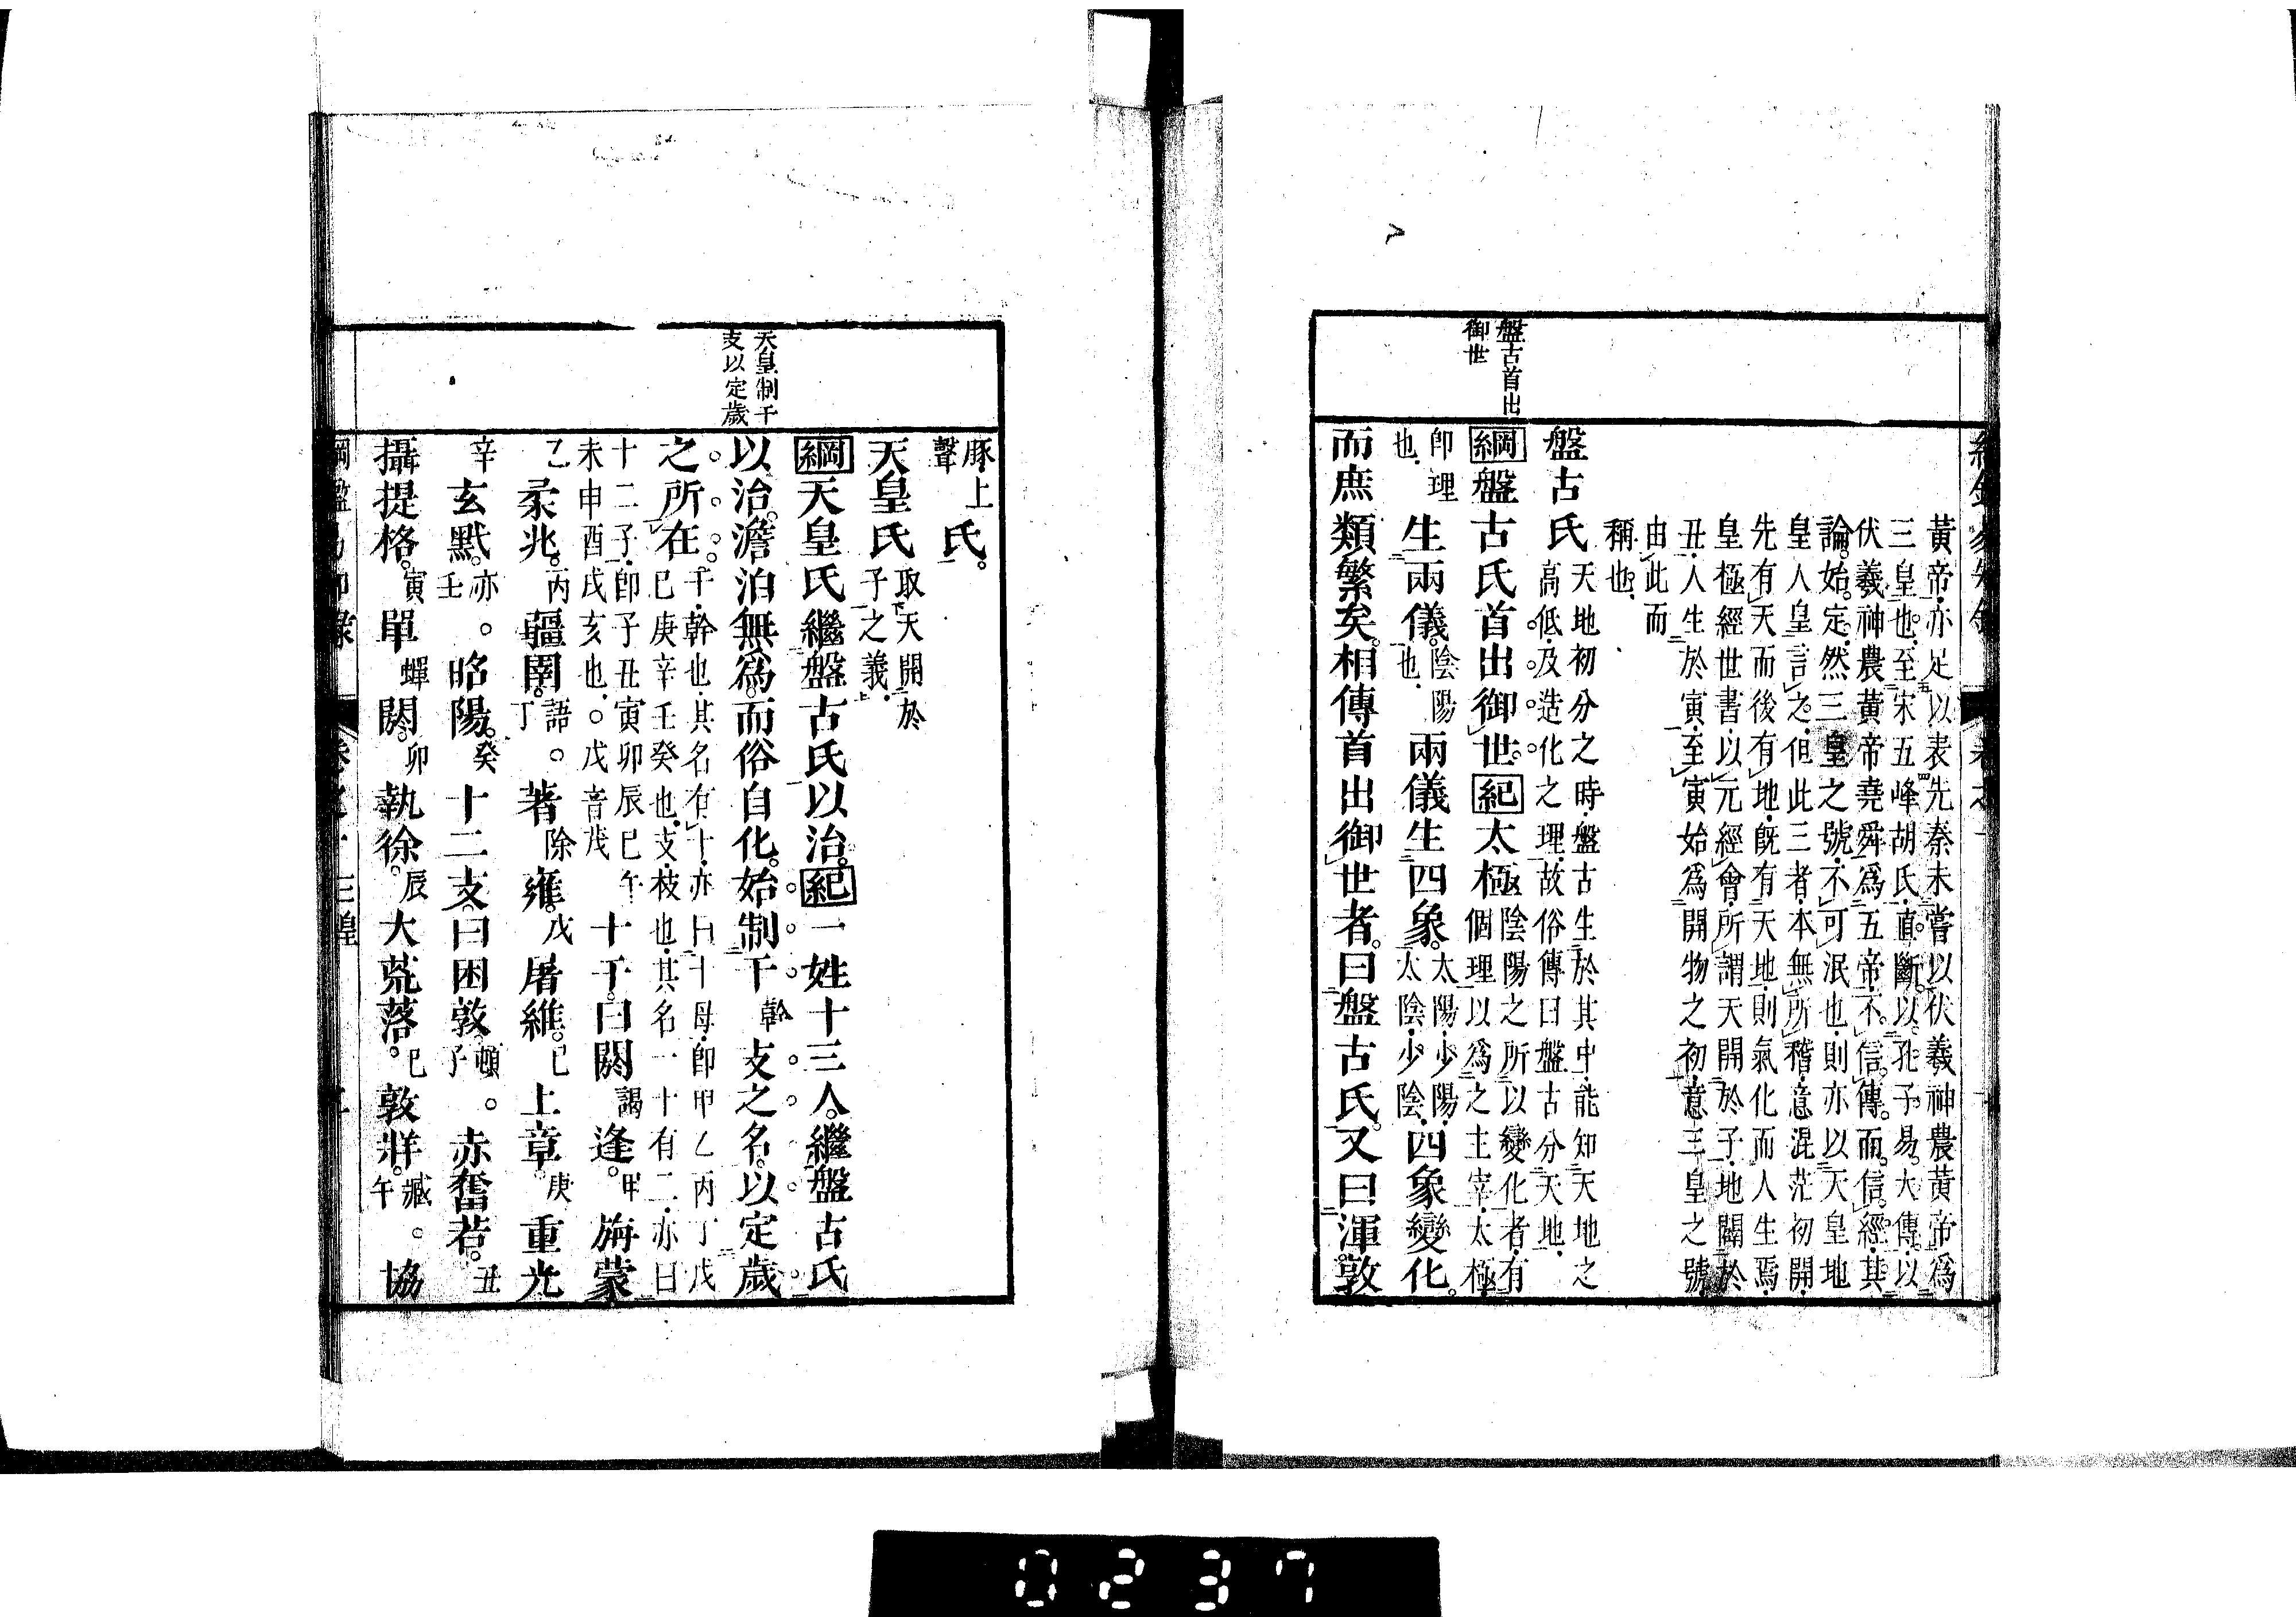 盤古首出
御世
黃帝亦足以表先秦未嘗以伏羲神農黃帝爲
三皇也至宋五峰胡氏直斷以孔子易大傳以
伏羲神農黃帝堯舜爲五帝不信傳而信經其
論始定然三皇之號不可泯也則亦以天皇地
皇人皇言之但此三者本無所稽意混茫初開
先有天而後有地旣有天地則氣化而人生焉
皇極經世書以元經會所謂天開於子地闢於
丑人生於寅至寅始爲開物之初意三皇之號
由此而
稱也
盤古氏天地初分之時盤古生於其中能知天地之
高低及造化之理故俗傳曰盤古分天地
綱盤古氏首出御世。紀太極陰陽之所以變化者有
個理以爲之主宰太極
卽理
也生兩儀。陰陽
也兩儀生四象。太陽少陽
太陰少陰四象變化。
而庶類繁矣。相傳首出御世者。曰盤古氏。又曰渾敦
天皇制干
支以定歲
豚上
聲氏。
天皇氏取天開於
子之義
綱天皇氏繼盤古氏以治。紀一姓十三人。繼盤古氏
以治。澹泊無爲。而俗自化。始制干幹支之名。以定歲
之所在。干幹也其名有十亦曰十母卽甲乙丙丁戊
己庚辛壬癸也支枝也其名一十有二亦曰
十二子卽子丑寅卯辰巳午
未申酉戌亥也。戊音茂十干。曰閼謁逢。甲旃蒙
乙柔兆。丙彊圉。語
丁。著除雍。戊屠維。己上章。庚重光
辛玄黓。亦
壬。昭陽。癸十二支。曰困敦。頓
子。赤奮若。丑
攝提格。寅單蟬閼。卯執徐。辰大荒落。巳敦牂。臧
午。協